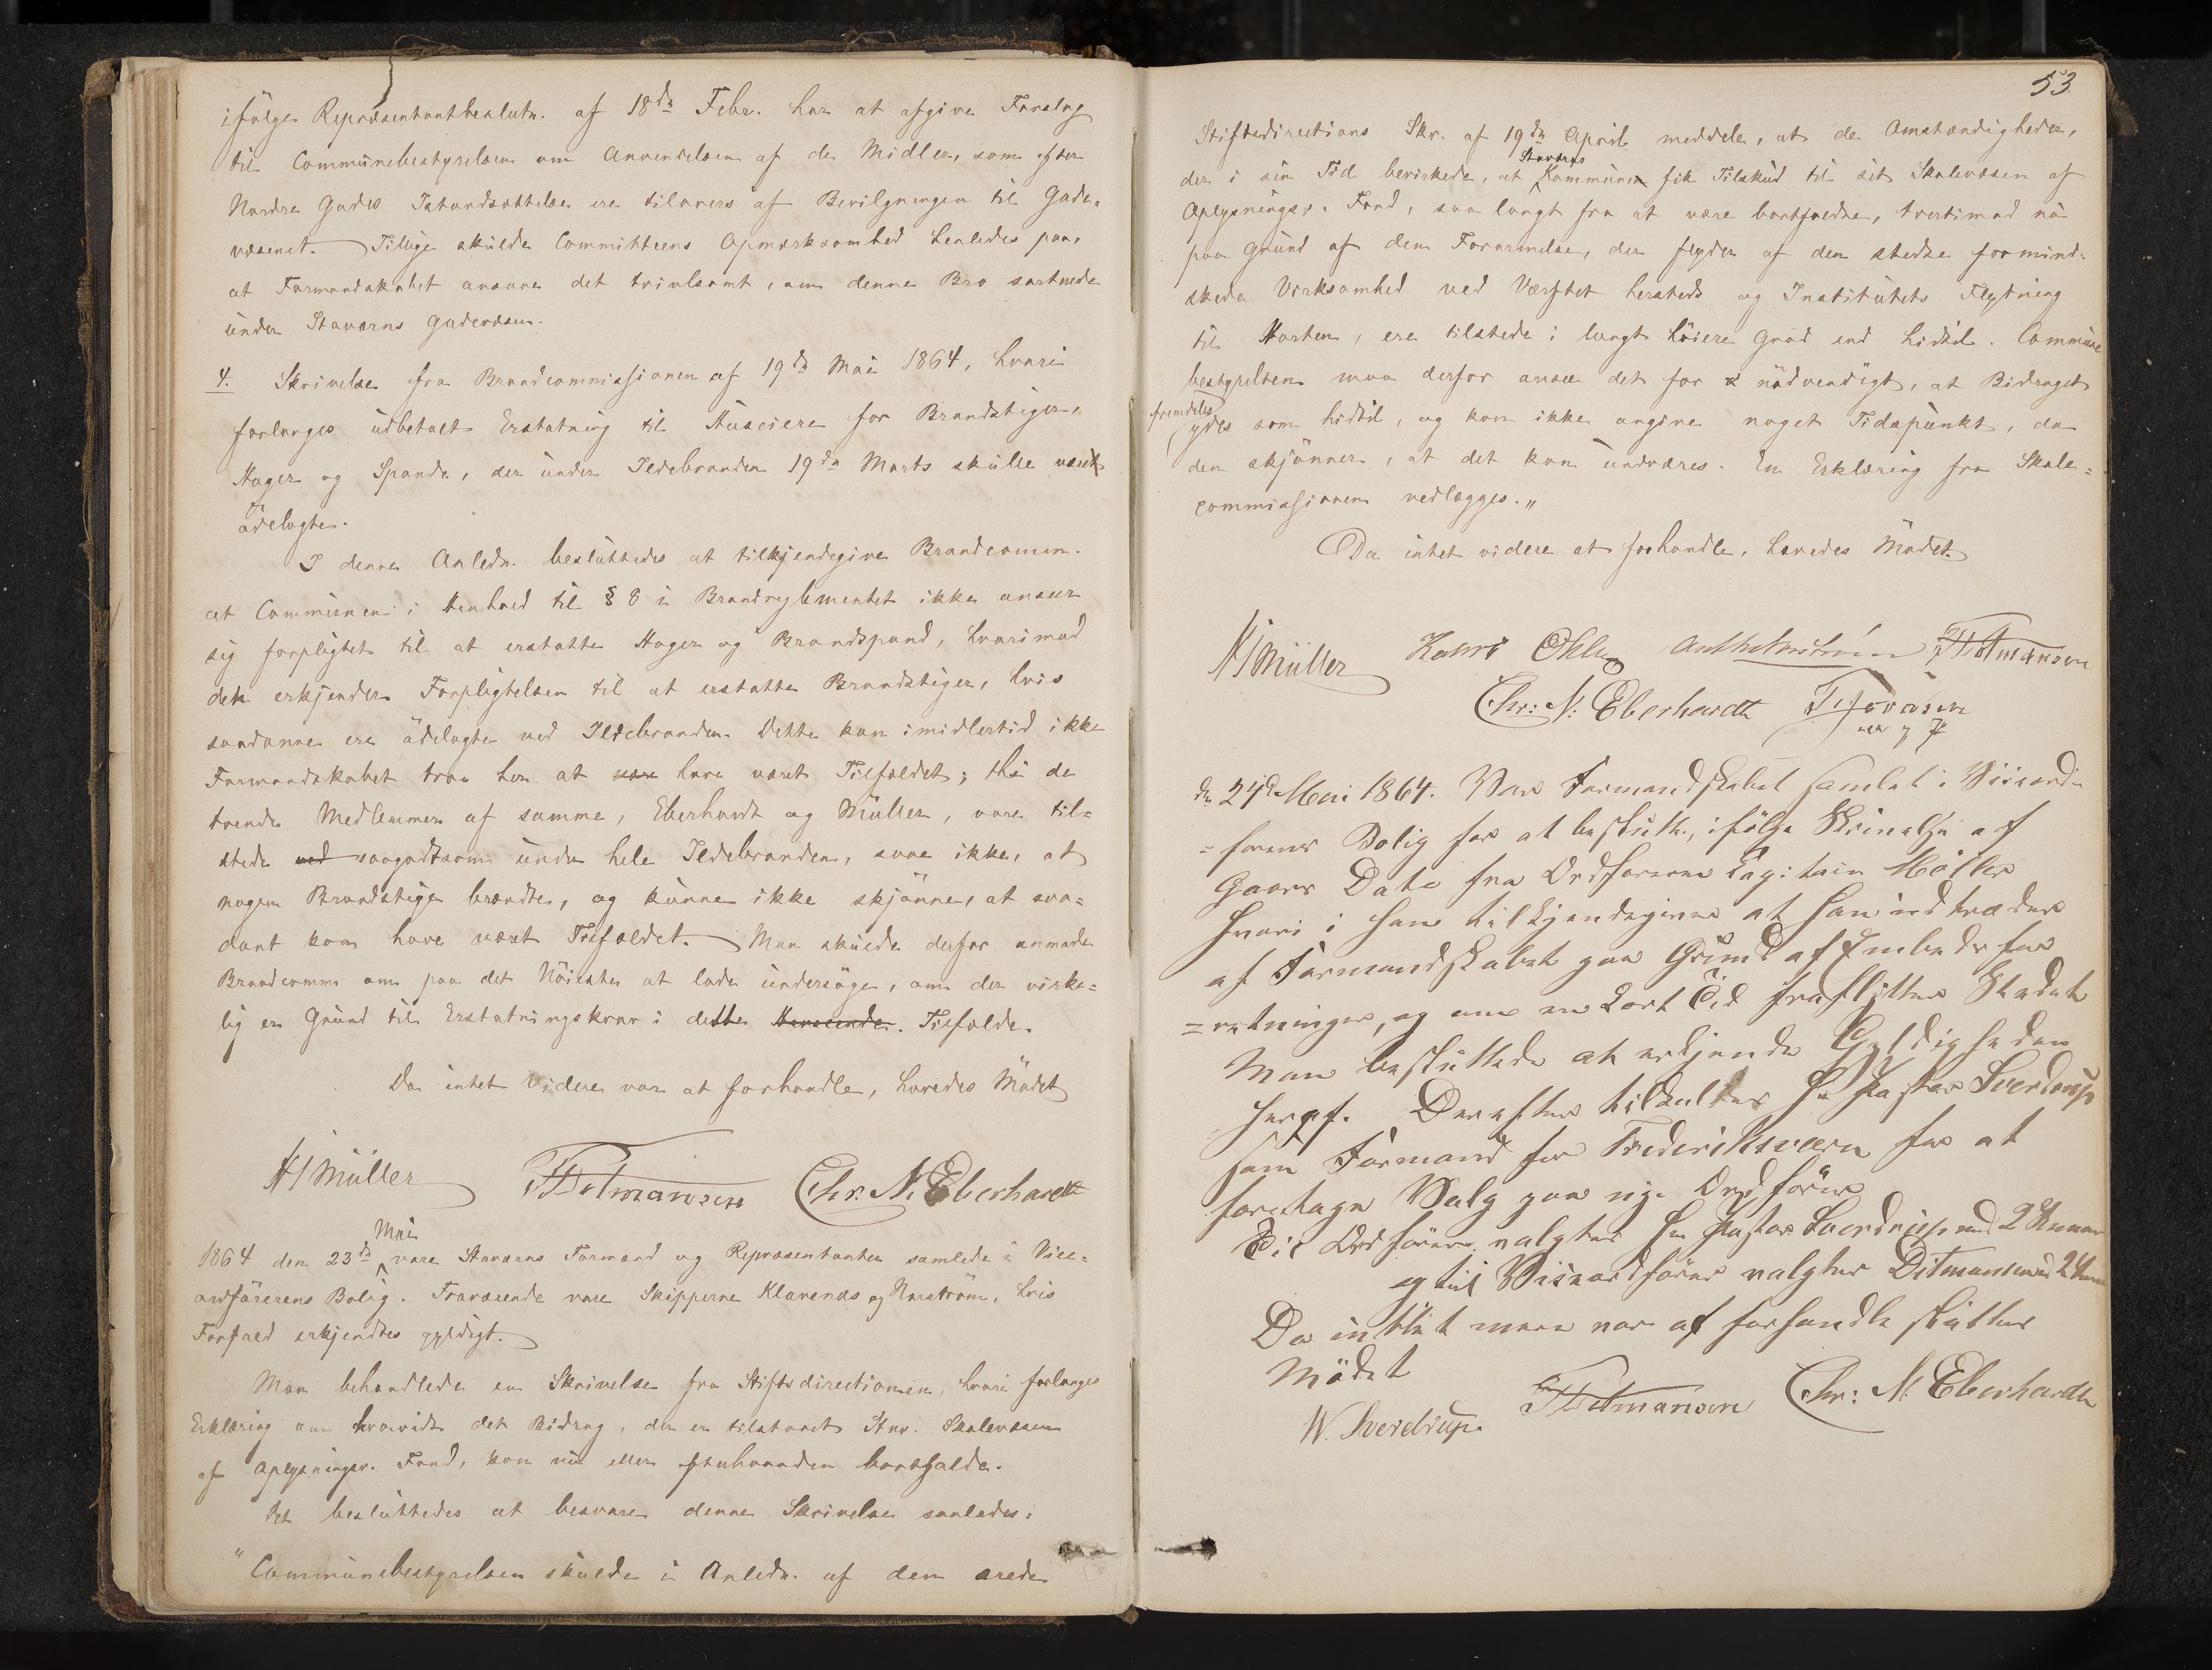 ifölge Repræsentantbeslutn. af 18de Febr. har at afgive Forslag
til Communebestyrelsen om Anvendelsen af de Midler, som efter
Nordre Gades Istandsættelse ere tilovers af Bevilgningen til Gade-
væsenet. Tillige skulde Committeens Opmærksomhed henledes paa,
at Formandskabet ansaae det tvivlsomt, om denne Bro sorterede
under Staværns Gadevæsen.
4. Skrivelse fra Brandcommissionen af 19de Mai 1864, hvori
forlanges udbetalt Erstatning til Huseiere for Brandstiger,
Hager og Spande, der under Ildebranden 19de Marts skulle være
ødelagte.
I denne Anledn. besluttedes at tilkjendegive Brandcomm.
at Communen i Henhold til § 8 i Brandreglementet ikke anseer
sig forpligtet til at erstatte Hager og Brandspand, hvorimod
den erkjender Forpligtelsen til at erstatte Brandstiger, hvis
saadanne ere ödelagte ved Ildebranden. Dette kan imidlertid ikke
Formandskabet troe her at være have været Tilfældet; thi de
tvende Medlemmer af samme, Eberhardt og Müller, vare til-
stede ved saagodtsom under hele Ildebranden, saae ikke, at
nogen Brandstige brændte, og kunne ikke skjönne, at saa-
dant kan have været Tilfældet. Man skulde derfor anmode
Brandcomm. om paa det Nöieste at lade undersöge, om der virke-
lig er Grund til Erstatningskrav i dette Henseende. Tilfælde.
Da intet videre var at forhandle, hævedes Mödet
HJ Müller TDitmansen Chr. N. Eberhardt
Mai
1864 den 23de vare Staværns Formænd og Repræsentanter samlede i Vice-
ordförerens Bolig. Fraværende vare Skipperne Klavenæs og Norström, hvis
Forfald erkjendtes gyldigt.
Man behandlede en Skrivelse fra Stiftsdirectionen, hvori forlanges
Erklæring om hvorvidt det Bidrag, der er tilstaaet Stav. Skolevæsen
af Oplysningsv. Fond, kan nu eller efterhaanden bortfalde.
Det besluttedes at besvare denne Skrivelse saaledes:
"Communebestyrelsen skulde i Anledn. af den ærede
53.
Stiftsdirections Skr. af 19de April meddele, at de Omstændigheder,
Staværns
der i sin Tid bevirkede, at Kommunen fik Tilskud til sit Skolevæsen af
Oplysningsv. Fond, saa langt fra at være bortfaldne, tvertimod nu
paa Grund af den Forarmelse, der flyder af den stedse formind-
skede Virksomhed ved Værftet hersteds og Institutets Flytning
til Horten, ere tilstede i langt höiere Grad end hidtil. Commune
bestyrelsen maa derfor ansee det for nödvendigt, at Bidraget
fremdeles
ydes som hidtil, og kan ikke angive noget Tidspunkt, da
den skjönner, at det kan undværes. En Erklæring fra Skole-
commissionen vedlægges."
Da intet videre at forhandle, hævedes Mödet
HJ Müller Ohlen TDitmansen
Chr: N: Eberhardt
den 24de Mai 1864. Var Formandskabet samlet i Viiceord-
=förens Bolig for at beslutte, ifölge Skrivelse af
Gaars Dato fra Ordföreren Capitain Möller
hvori han tilkjendegiver at han udtræder
af Formandskabet paa Grund af Embedsfor
=retninger, og om en kort Tid fraflytter Stedet
Man besluttede at erkjende Gyldigheden
heraf. Derefter tilkaldtes Hr Pastor Sverdrup
som Formand for Frederiksværn for at
foretage Valg paa ny Ordförer
Til Ordförer valgtes Hr Pastor Sverdrup med 2 Stemmer
og til Viiceordförer valgtes Ditmansen med 2 Stem
Da intet mere var at forhandle sluttes
Mödet
W. Sverdrup. TDitmansen Chr: N. Eberhardt